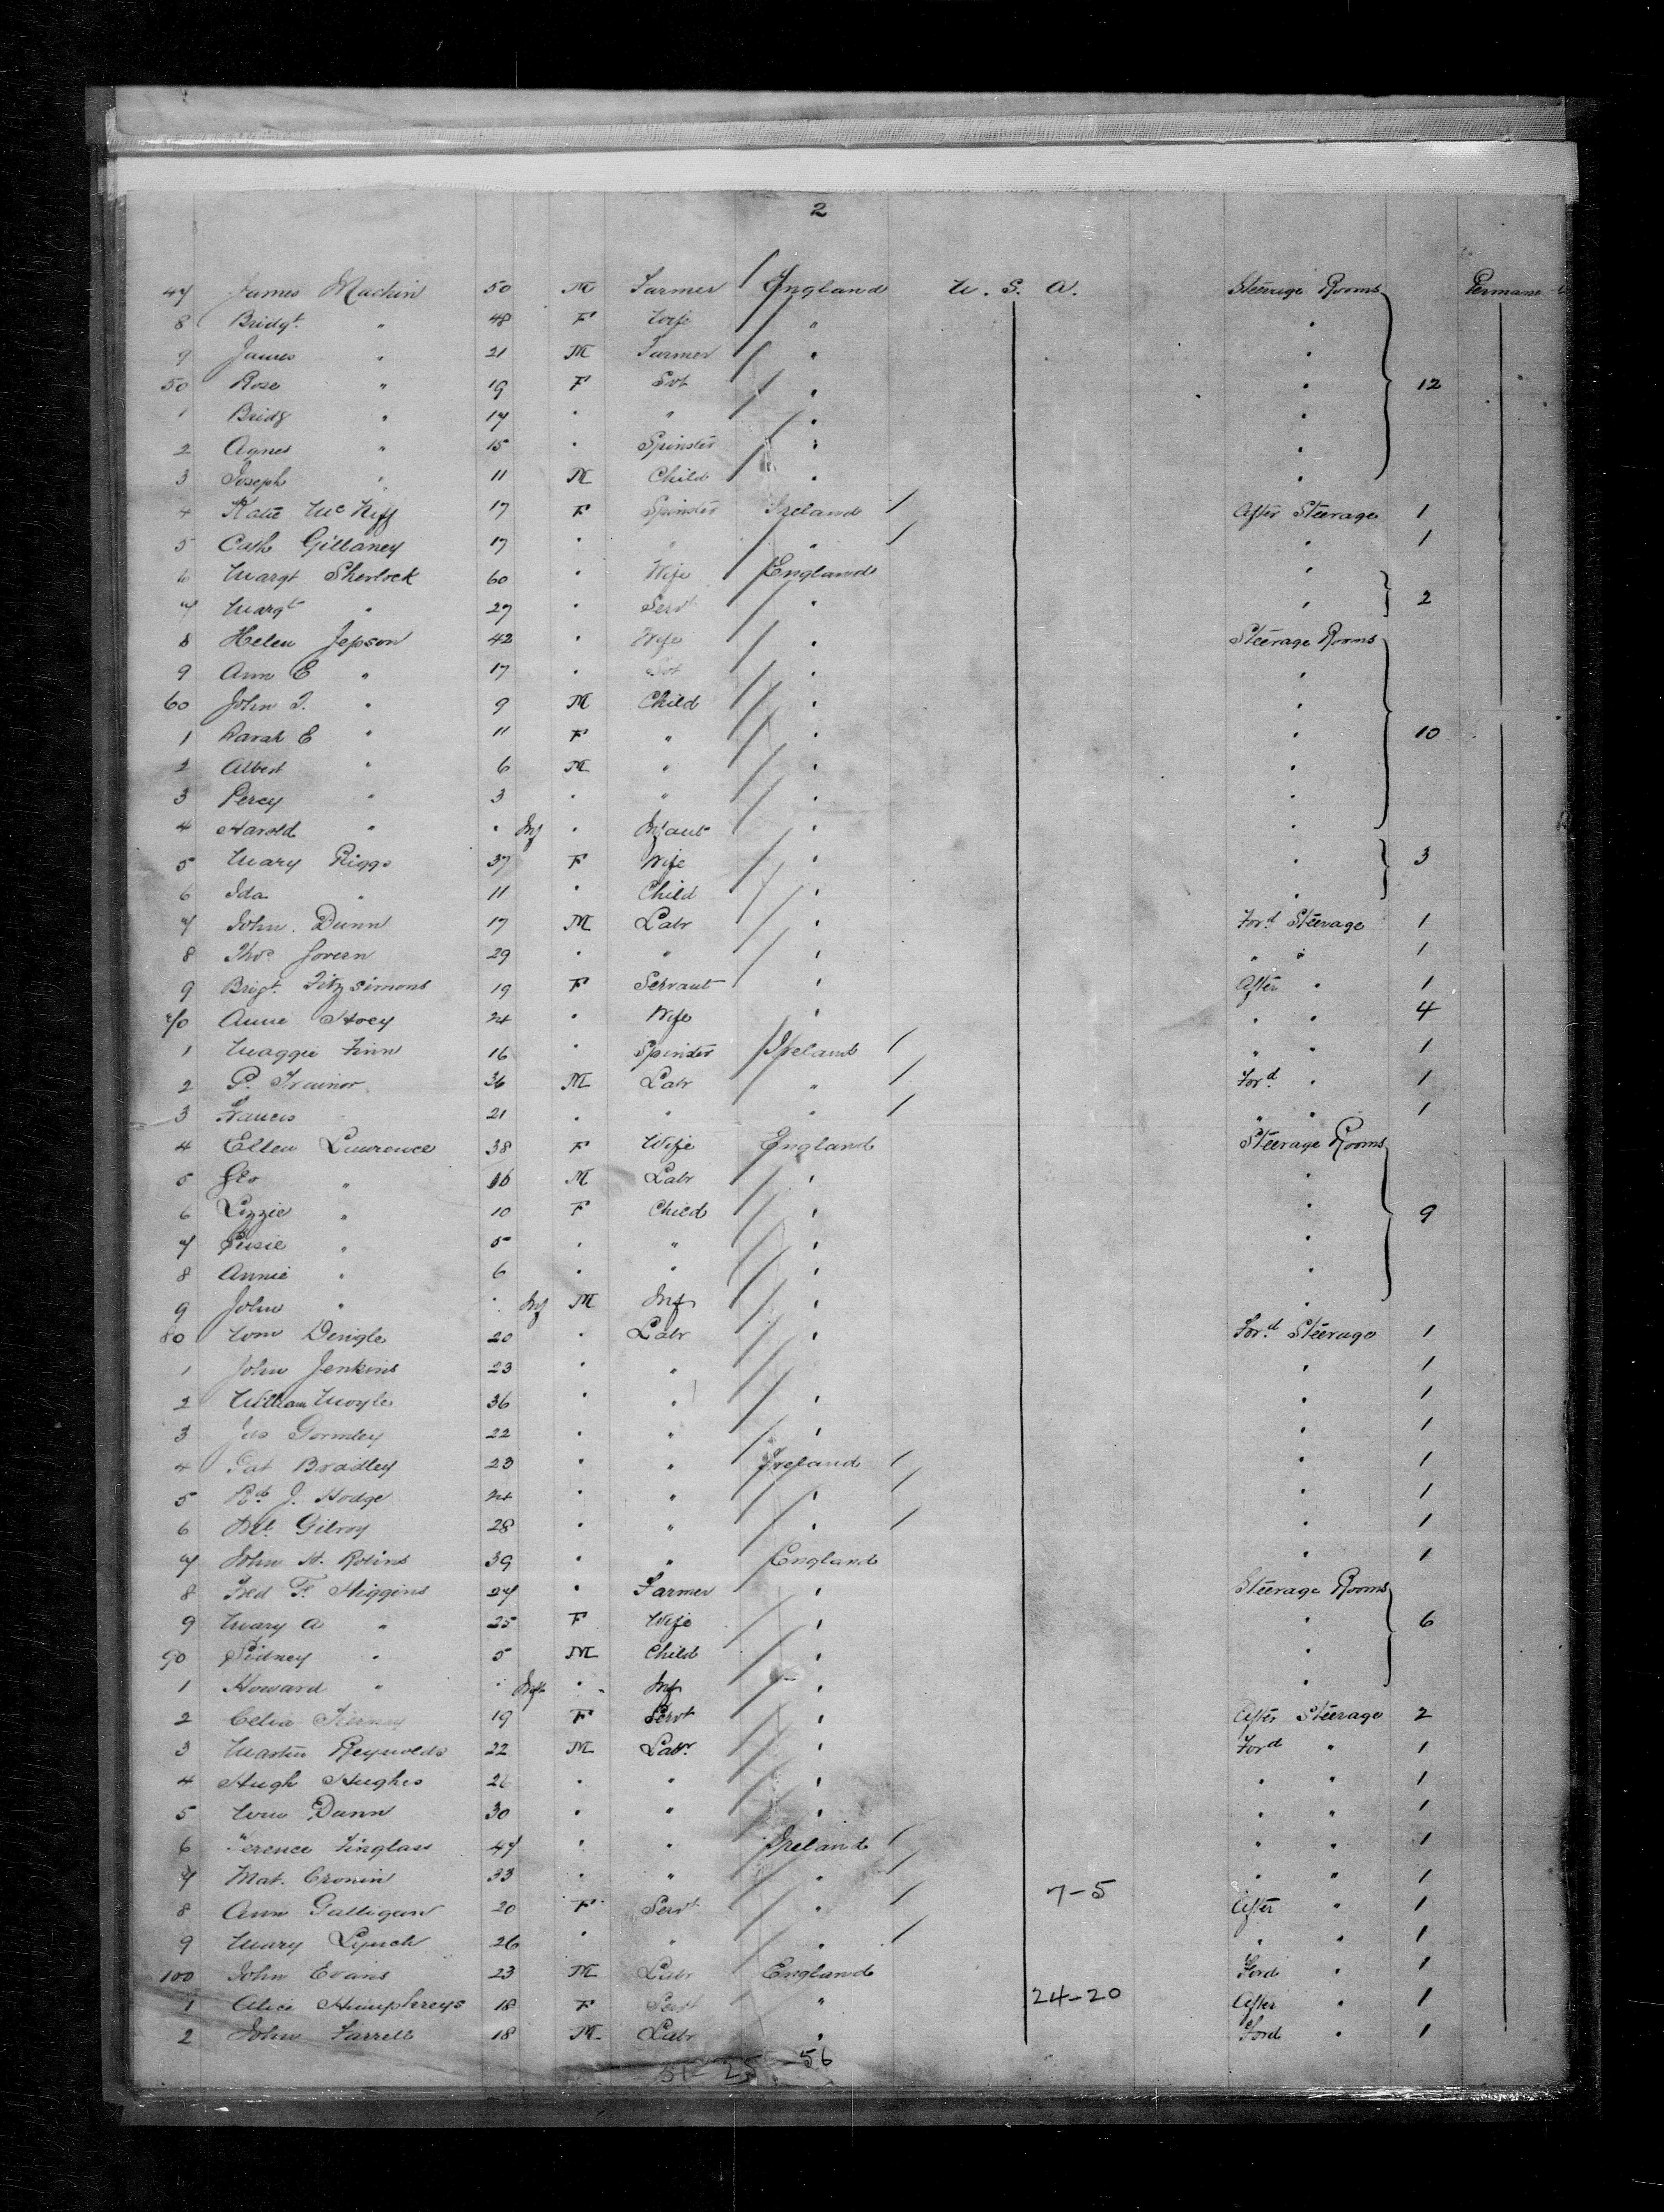 2
47 James Machin 50 M Farmer England U. S. A. Steerage Rooms Permane
8 Bridgt. " 48 F Wife " "
9 James " 21 M Farmer " "
50 Rose " 19 F Svt " " 12
1 Bridg " 17 " " " "
2 Agnes " 15 " Spinster " "
3 Joseph " 11 M Child " "
4 Katie Mc Niff 17 F Spinster Ireland / After Steerage 1
5 Cath Gillaney 17 " " " / " 1
6 Margt Sherlock 60 " Wife England "
7 Margt " 27 " Servt " " 2
8 Helen Jepson 42 " Wife " Steerage Rooms
9 Ann E " 17 " Svt " "
60 John T. " 9 M Child " "
1 Sarah E " 11 F " " " 10
2 Albert " 6 M " " "
3 Percy " 3 " " " "
4 Harold " " Inf " Infant " "
5 Mary Riggs 37 F Wife " " 3
6 Ida " 11 " Child " "
7 John Dunn 17 M Labr " Ford Steerage 1
8 Thos Govern 29 " " " " " 1
9 Brigt. Fitzsimons 19 F Servant " After " 1
70 Annie Hoey 24 " Wife " " " 4
1 Maggie Finn 16 " Spinster Ireland / " " 1
2 P. Trainor 36 M Labr " / Ford " 1
3 Francis " 21 " " " / " " 1
4 Ellen Lawrence 38 F Wife England Steerage Rooms
5 Geo " 16 M Labr " "
6 Lizzie " 10 F Child " " 9
7 Susie " 5 " " " "
8 Annie " 6 " " " "
9 John " " Inf M Inf " "
80 Wm Dingle 20 " Labr " Ford Steerage 1
1 John Jenkins 23 " " " 1
2 William Moyle 36 " " " " 1
3 Jas Gormley 22 " " " " 1
4 Pat Bradley 23 " " Ireland / " 1
5 J. Hodge 24 " " " / " 1
6 Ml. Gilroy 28 " " " / " 1
7 John H. Robins 39 " " England " 1
8 Fred F. Higgins 27 " Farmer " Steerage Rooms
9 Mary A " 25 F Wife " " 6
90 Sidney " 5 M Child " "
1 Howard " " Inft " Inf " "
2 Celia Kiernay 19 F Servt " After Steerage 2
3 Martin Reynolds 22 M Labr " Ford " 1
4 Hugh Hughes 26 " " " " " 1
5 Wm Dunn 30 " " " " " 1
6 Terence Finglass 47 " " Ireland / " " 1
7 Mat. Cronin 33 " " " / " " 1
8 Ann Galligan 20 F Servt " / 7-5 After " 1
9 Mary Lynch 26 " " " / " " 1
100 John Evans 23 M Labr England Ford " 1
1 Alice Humphreys 18 F Servt " 24-20 After " 1
2 John Farrell 18 M Labr " Ford " 1
25 - 56